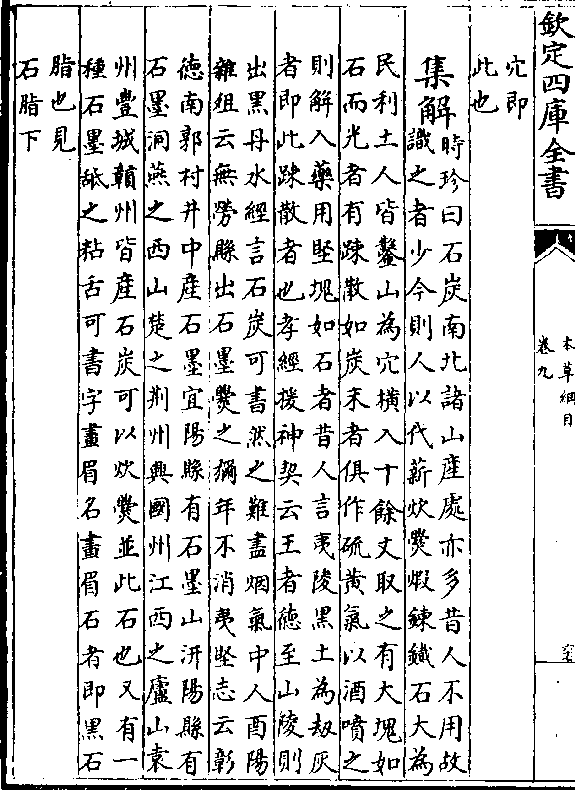 欽定四庫全書
本草綱目
卷九
穴即
此也
集解
時珍曰石炭南北諸山産處亦多昔人不用故
識之者少今則人以代薪炊爨煅鍊鐵石大為
民利土人皆鑿山為穴横入十餘丈取之有大塊如
石而光者有踈散如炭末者俱作硫黄氣以酒噴之
則解入藥用堅塊如石者昔人言夷陵黑土為刼灰
者即此踈散者也孝經援神契云王者德至山陵則
出黑丹水經言石炭可書然之難盡烟氣中人酉陽
雜俎云無勞縣出石墨爨之彌年不消夷堅志云彰
徳南郭村井中産石墨宜陽縣有石墨山汧陽縣有
石墨洞燕之西山楚之荆州興國州江西之廬山袁
州豐城贑州皆産石炭可以炊爨並此石也又有一
種石墨舐之粘舌可書字畫眉名畫眉石者即黑石
脂也見
石脂下